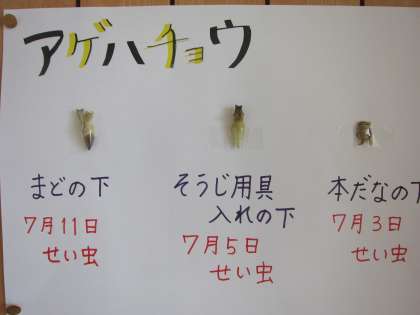 アゲハチョウ
まどの下
7月11日
せい虫
そうじ用具
入れの下
7月5日
せい虫
本だなの下
7月3日
せい虫